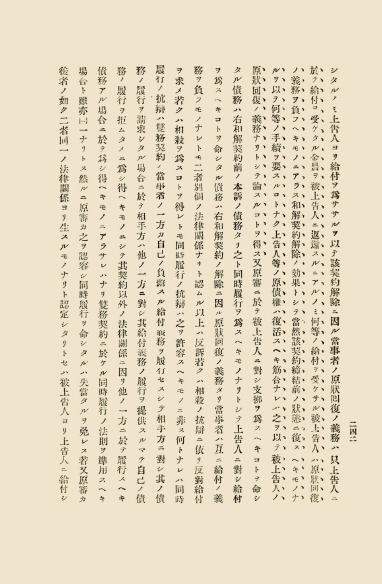 二四二
シタルノミ上告人ヨリ給付ヲ為サヽルヲ以テ該契約解除ニ因ル當事者ノ原狀回復ノ義務ハ只上告人ニ
於テ給付ヲ受ケタル金員ヲ被上告人ニ返還スルニアルノミ何等ノ給付ヲ受ケサル被上告人ハ原狀回復
ノ義務ヲ負フヘキモノニアラス和解契約解除ノ効果トシテ當然該契約締結前ノ狀態ニ復スヘキモノナ
ルヲ以テ何等ノ手續ヲ要スルコトナク上告人等ノ原債權ハ復活スヘキ筋合ナレハ之ヲ以テ被上告人ノ
原狀回復ノ義務ナリトシテ論スルコトヲ得ス又原審ニ於テ被上告人ニ對シ支拂ヲ為スヘキコトヲ命シ
タル債務ハ右和解契約前ノ本訴ノ債務タリ之ト同時履行ヲ為スヘキモノナリトシテ上告人ニ對シ給付
ヲ為スヘキコトヲ命シタル債務ハ右和解契約ノ解除ニ因ル原狀回復ノ義務タリ當事者ハ互ニ給付ノ義
務ヲ負フモノナレトモ二者別個ノ法律關係ナリト認ムル以上ハ反訴若クハ相殺ノ抗辯ニ依リ反對給付
ヲ求メ若クハ相殺ヲ為スコトヲ得レトモ同時履行ノ抗辯ハ之ヲ許容スヘキモノニ非ス何トナレハ同時
履行ノ抗辯ハ雙務契約ノ當事者ノ一方カ自己ノ負擔スル給付義務ヲ履行セスシテ相手方ニ對シ其ノ債
務ノ履行ヲ請求シタル場合ニ於テ相手方ハ他ノ一方ニ對シ其給付義務ノ履行ヲ提供スルマテ自己ノ債
務ノ履行ヲ拒ムタメニ為シ得ヘキモノニシテ其契約以外ノ法律關係ニ因リ他ノ一方ニ於テ履行スヘキ
債務アル場合ニ於テ為シ得ヘキモノニアラサレハナリ雙務契約ニ於ケル同時履行ノ法則ヲ準用スヘキ
場合ト雖亦同一ナリトス然ルニ原審カ之ヲ認容シ同時履行ヲ命シタルハ失當タルヲ免レス若又原審カ
從者ノ如ク二者同一ノ法律關係ヨリ生スルモノナリト認定シタリトセハ被上告人ヨリ上告人ニ給付シ